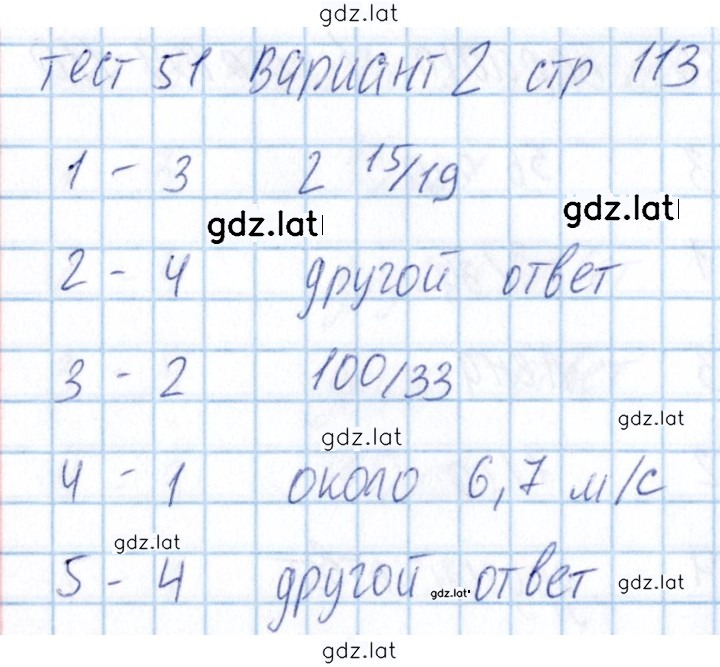 gdz.lat
тест 51 вариант 2 стр 113
1 - 3 2 15/19
gdz.lat gdz.lat
2 - 4 другой ответ
3 - 2 100/33
gdz.lat
gdz.lat
4 - 1 около 6,7 м/с
gdz.lat
5 - 4 другой ответ
gdz.lat gdz.lat
gdz.lat